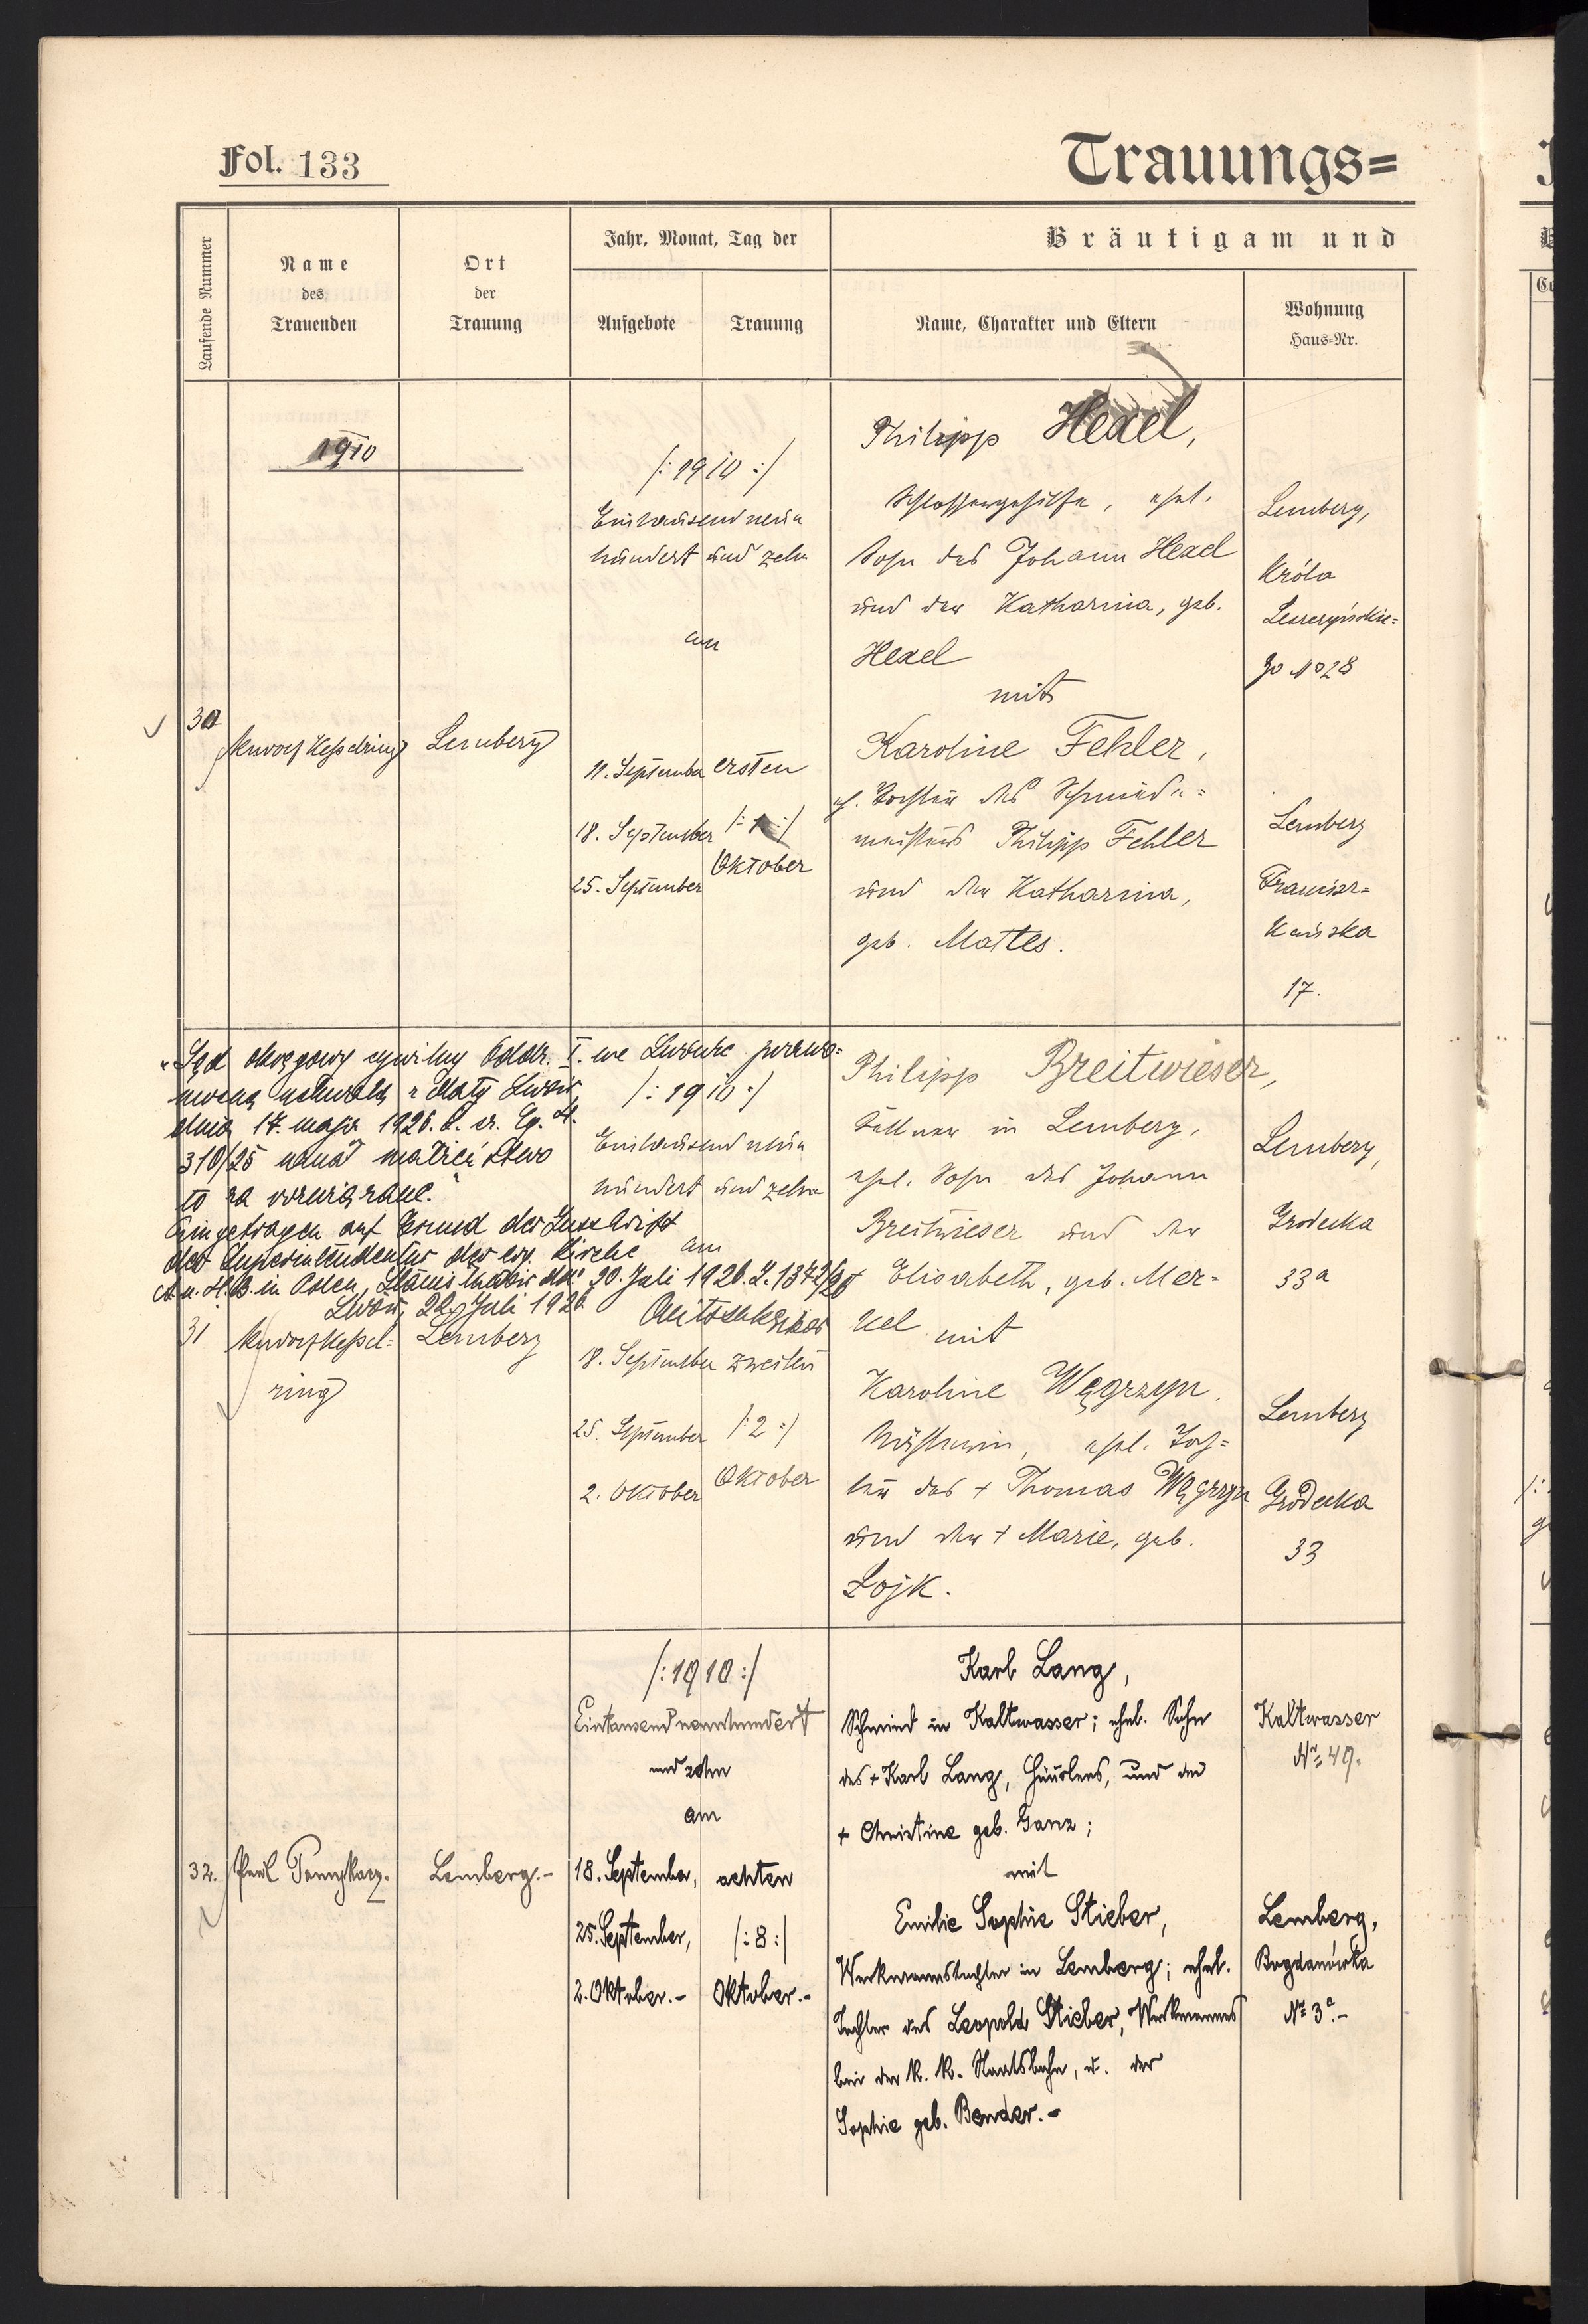 Fol. 133
Trauungs=
Laufende Nummer
Name
des
Trauenden
Ort
der
Trauung
Jahr, Monat, Tag der
Aufgebote
Trauung
Bräutigam und
Name, Charakter und Eltern
Wohnung
Haus=Nr.
1910
30
Kesselring
Lemberg
/: 1910 :/
Eintausend neun
hundert und zehn
am
11. September
18. September
25. September
ersten
/: 1 :/
Oktober
Philipp Hexel,
Schlossergehilfe, ehel.
Sohn des Johann Hexel
und der Katharina, geb.
Hexel
mit
Karoline Fehler,
Tochter des Schmiede=
meisters Philipp Fehler
und der Katharina,
geb. Mattes.
Lemberg,
Króla
Leszczyńskie=
go No 28
Lemberg
Francisz=
kańska
17.
"Sąd okręgowy cywilny Oddz. I. we Lwowie prawo=
mocną uchwałą z daty Lwów,
dnia 17. maja 1926. L. cz. Cg. 
310/25 uznał małżeństwo
to za rozwiązane."
Eingetragen auf Grund der Zuschrift
der Superintendentur der ev. Kirche
A. u. H. B. in Polen, Stanisławów dto 20. Juli 1926. Z. 1372/26
Lwów, 22. Juli 1926
31
Kessel=
ring
Lemberg
/: 1910 :/
Eintausend neun
hundert und zehn
am
18. September
25. September
2. Oktober
zweiten
/: 2 :/
Oktober
Philipp Breitwieser,
in Lemberg,
ehel. Sohn des Johann
Breitwieser und der
Elisabeth, geb. Mer=
kel mit
Karoline Węgrzyn,
ehel. Toch=
ter des + Thomas Węgrzyn
und der + Marie, geb.
Lojk.
Lemberg,
Grodecka
33a
Lemberg
Grodecka
33
32.
Paul
Lemberg.-
/: 1910 :/
Eintausend neunhundert
und zehn
am
18. September,
25. September,
2. Oktober.-
achten
/: 8 :/
Oktober.-
Karl Lang,
Schmied in Kaltwasser; ehel. Sohn
des + Karl Lang, Häuslers, und der
+ Christine geb. Ganz;
mit
Emilie Sophie Stieber,
Werkmannstochter in Lemberg; ehel.
Tochter des Leopold Stieber, Werkmannes
bei der k. k. Staatsbahn, u. der
Sophie geb. Bender.-
Kaltwasser
No 49.
Lemberg,
Bogdanówka
No 3a.-